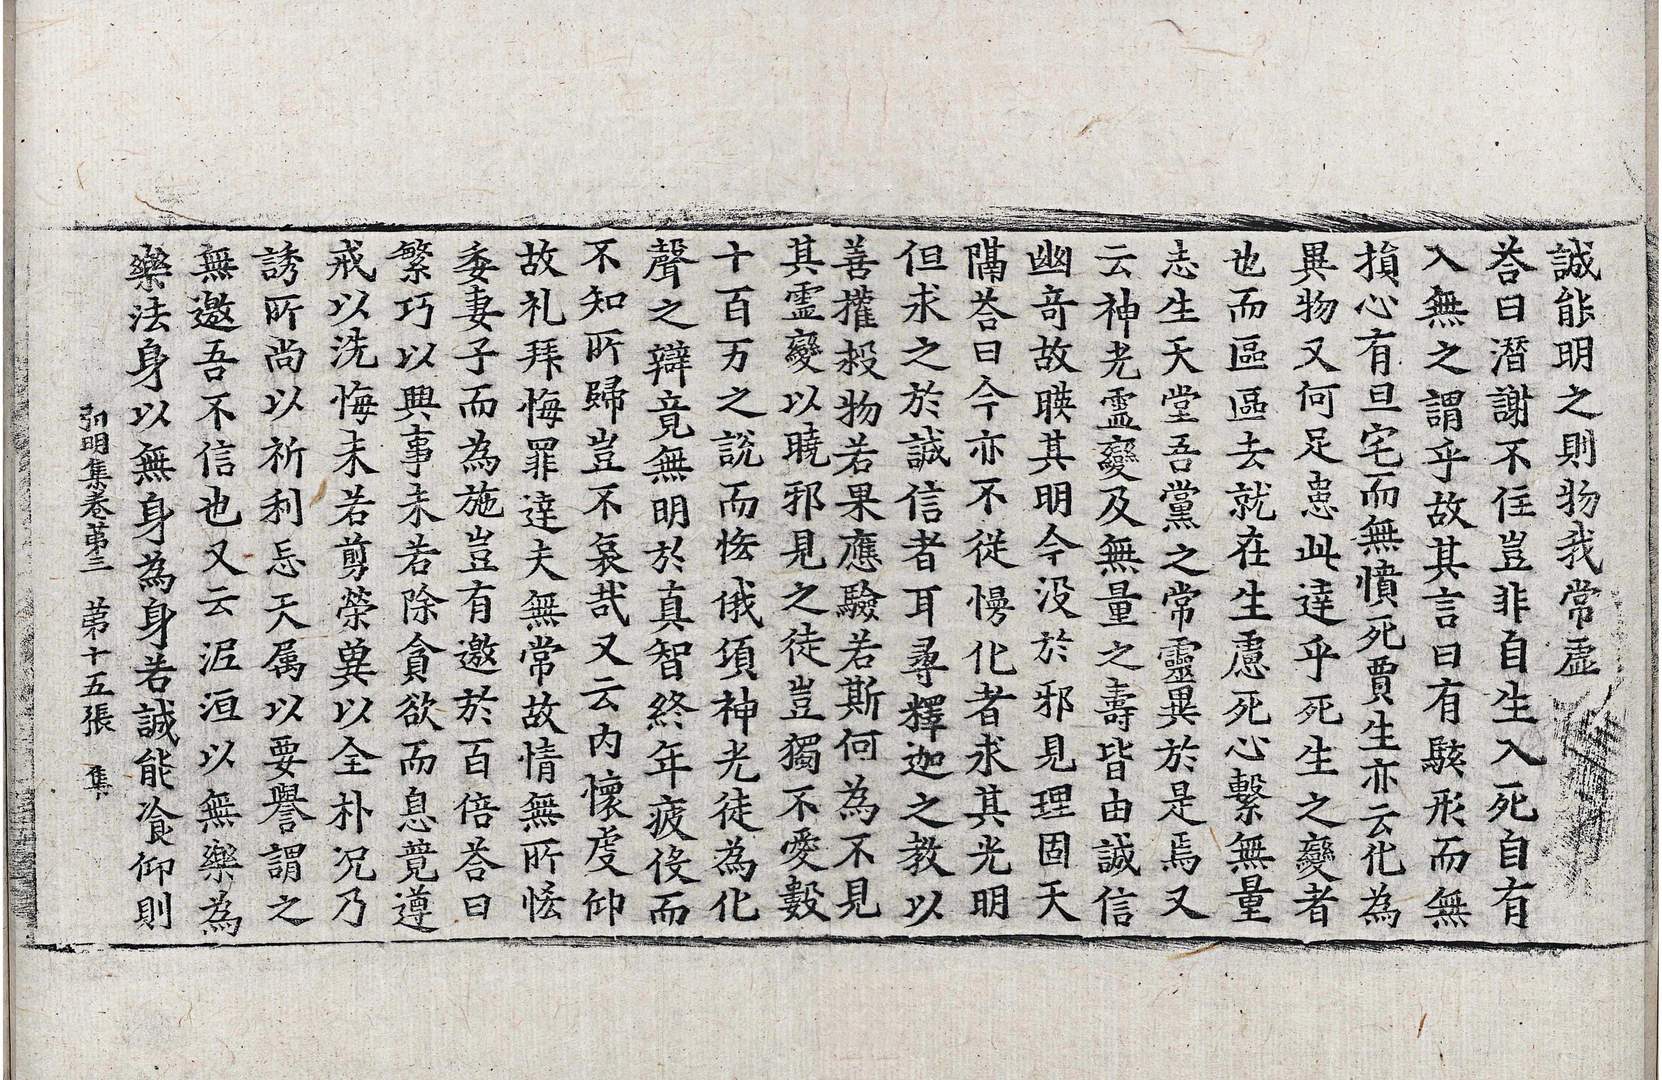 誠能明之則物我常虛
荅曰潛謝不住豈非自生入死自有
入無之謂乎故其言曰有駭形而無
損心有旦宅而無憤死賈生亦云化為
異物又何足患此達乎死生之變者
也而區區去就在生慮死心繫無量
志生天堂吾黨之常靈異於是焉又
云神光靈變及無量之壽皆由誠信
幽竒故暎其明今没於邪見理固天
隔荅曰今亦不從慢化者求其光明
但求之於誠信者耳尋釋迦之教以
善權救物若果應驗若斯何為不見
其靈變以曉邪見之徒豈獨不愛數
十百万之說而恡俄頃神光徒為化
聲之辯竟無明於真智終年疲伇而
不知所歸豈不哀哉又云内懷虔仰
故礼拜悔罪達夫無常故情無所恡
委妻子而為施豈有邀於百倍荅曰
繁巧以興事未若除貪欲而息競遵
戒以洗悔未若剪榮兾以全朴况乃
誘所尚以祈利忘天属以要譽謂之
無邀吾不信也又云泥洹以無樂為
樂法身以無身為身若誠能飡仰則
弘明集卷第三　第十五張　集